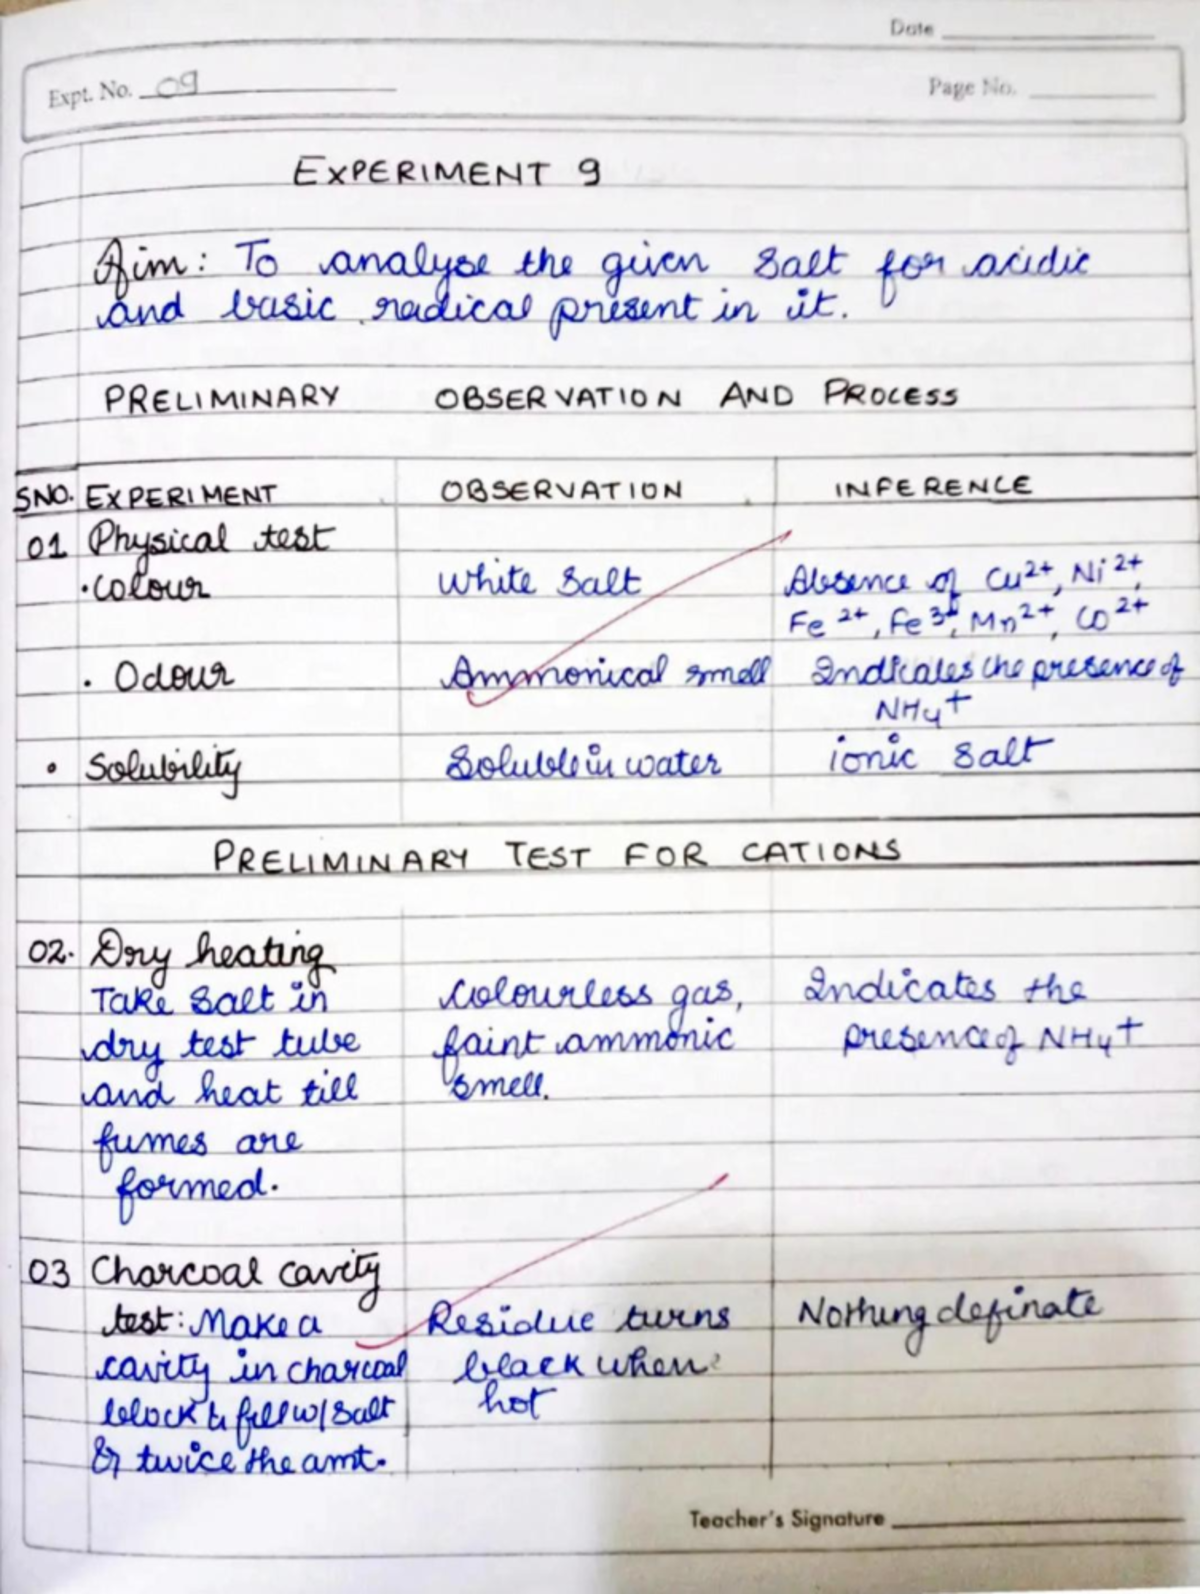 Date
Expt. No. 09
Page No.
EXPERIMENT 9
Aim: To analyse the given salt for acidic
and basic radical present in it.
PRELIMINARY OBSERVATION AND PROCESS
SNO. EXPERIMENT OBSERVATION INFERENCE
01 Physical test
•Colour White Salt Absence of Cu²⁺, Ni²⁺,
Fe²⁺, Fe³⁺, Mn²⁺, CO²⁺
• Odour Ammonical smell Indicates the presence of
NH₄⁺
• Solubility Soluble in water ionic salt
PRELIMINARY TEST FOR CATIONS
02. Dry heating
Take salt in Colourless gas, Indicates the
dry test tube faint ammonic presence of NH₄⁺
and heat till smell.
fumes are
formed.
03 Charcoal cavity
test: Make a Residue turns Nothing definate
cavity in charcoal black when
block & fill w/ salt hot
& twice the amt.
Teacher's Signature